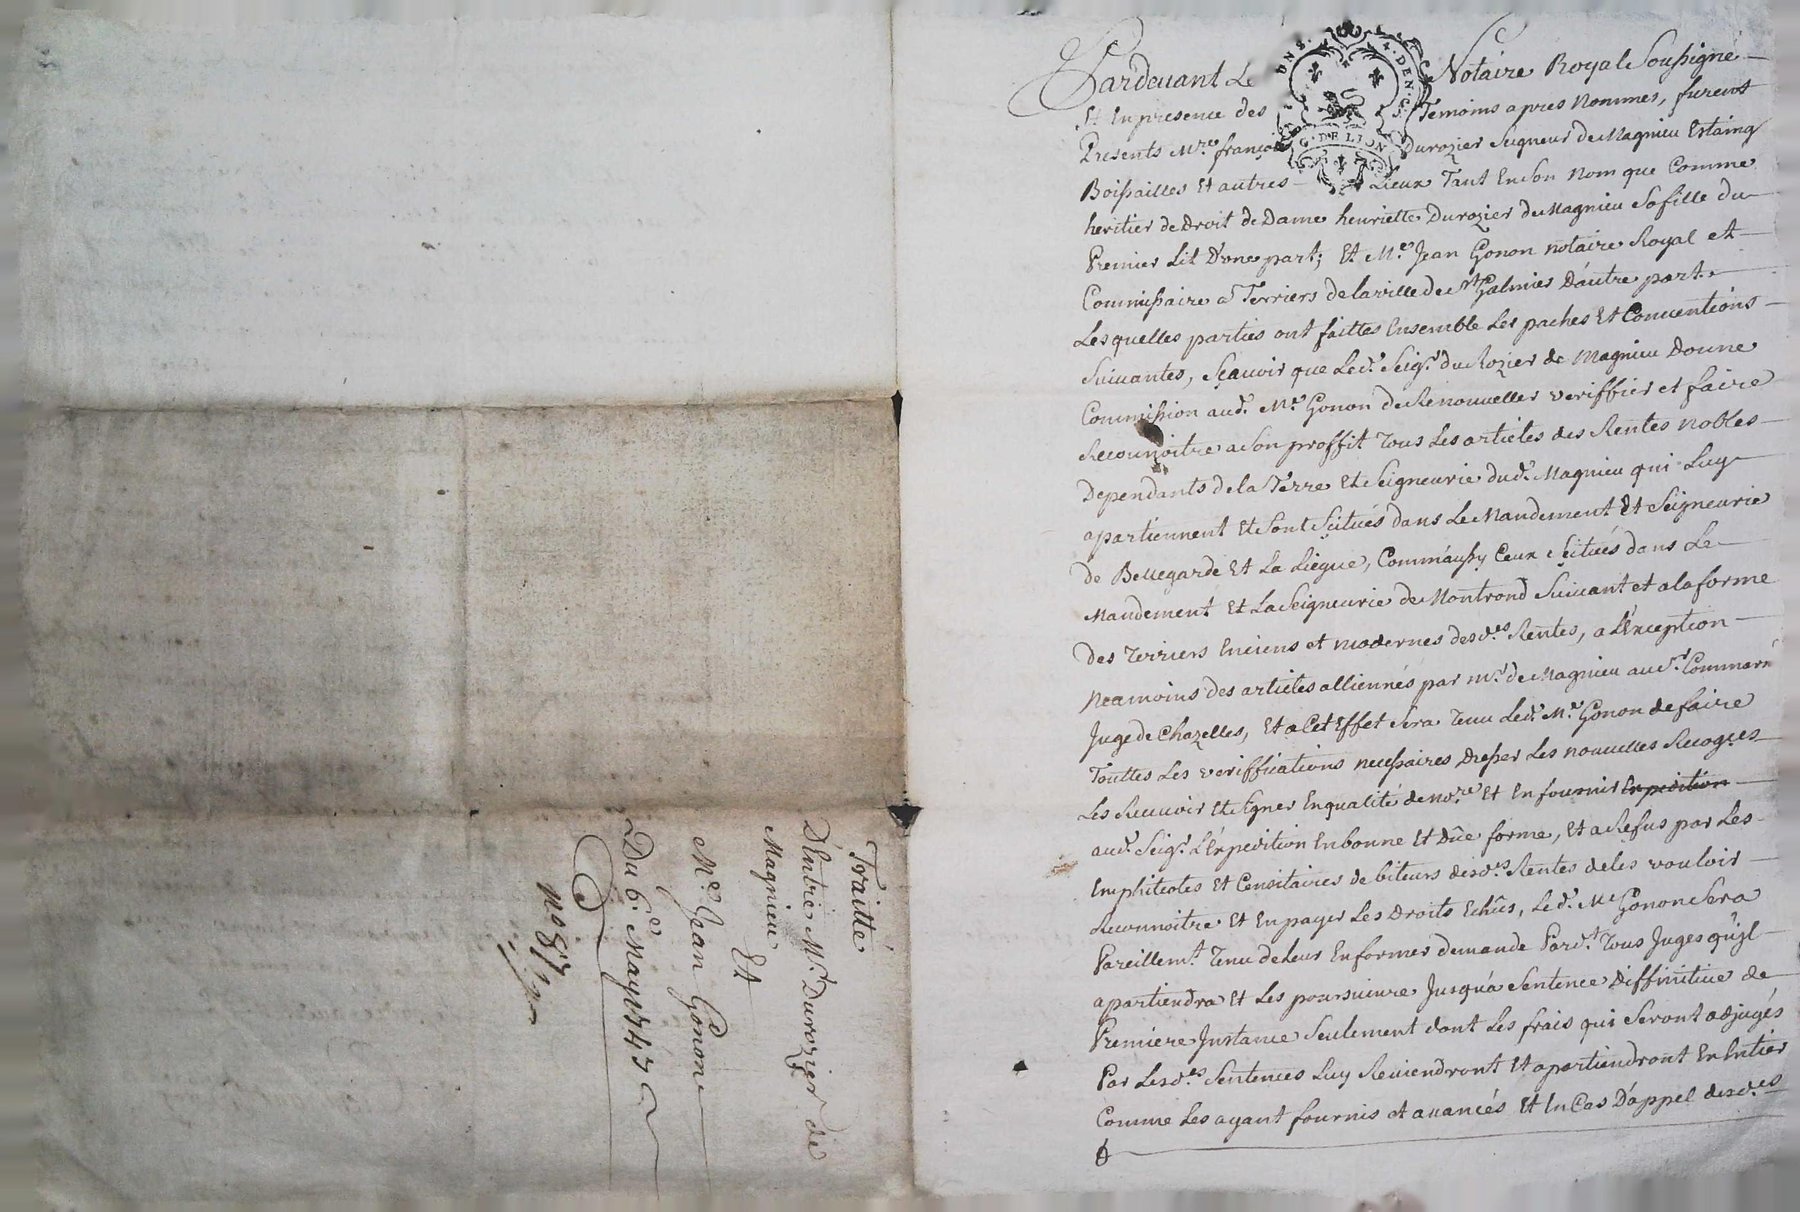 Traitté
D'Entre Mr. Durozier de
Magnieu
Et
Me. Jean Gonon
Du 6e. May 1747
no 87
Pardevant Le Notaire Royal Soussigné
Et En presence des Temoins apres Nommes, furent
Presents Mre. françois Durozier Seigneur de Magnieu Estaing
Boissailles Et autres Lieux Tant En Son Nom que Comme
heritier de Droit de Dame henriette Durozier de Magnieu Sa fille du
Premier Lit D'une part; Et Me. Jean Gonon notaire Royal et
Commissaire a Terriers de la ville de St Galmier D'autre part
Lesquelles parties ont faittes Ensemble Les paches Et Conventions
Suivantes, Sçavoir que Led. Seigr. du Rozier de Magnieu Donne
Commission aud. Me. Gonon de Renouveller veriffier et faire
Reconnoitre a Son proffit Tous Les articles des Rentes Nobles
Dependants de la Terre Et Seigneurie dud. Magnieu qui Luy
apartiennent Et Sont Scitués dans Le Mandement Et Seigneurie
de Bellegarde Et La Liegue, Comm'aussy Ceux Scitués dans Le
Mandement Et La Seigneurie de Montrond Suivant et a la forme
Des Terriers Enciens et modernes desd.es Rentes, a L'Exception
Neamoins des articles alliennés par mr. de Magnieu au Sr. Commarn
Juge de Chazelles, Et a Cet Effet Sera Tenu Led. Me. Gonon de faire
Touttes Les veriffications necessaires Dresser Les nouvelles Recogces
Les Recevoir Et Signer En qualité de nore. Et En fournir Expedition
aud. Seigr. L'Expedition En bonne Et Dûe forme, Et a Refus par Les
Emphiteotes Et Censitaires debiteurs desd.es Rentes de les vouloir
Reconnoitre Et En payer Les Droits Echûs, Led. Me Gonon Sera
Pareillemt. Tenu de Leur En former demande Pard.t Tous Juges qu'il
apartiendra Et Les poursuivre Jusqu'a Sentence Diffinitive de
Premiere Instance Seulement dont Les frais qui Seront adjugés
Par Lesd.es Sentences Luy Reviendront Et apartiendront En Entier
Comme Les ayant fournis et avancés Et En Cas D'appel desd.es
UNS. 4. DEN.
G. DE LION